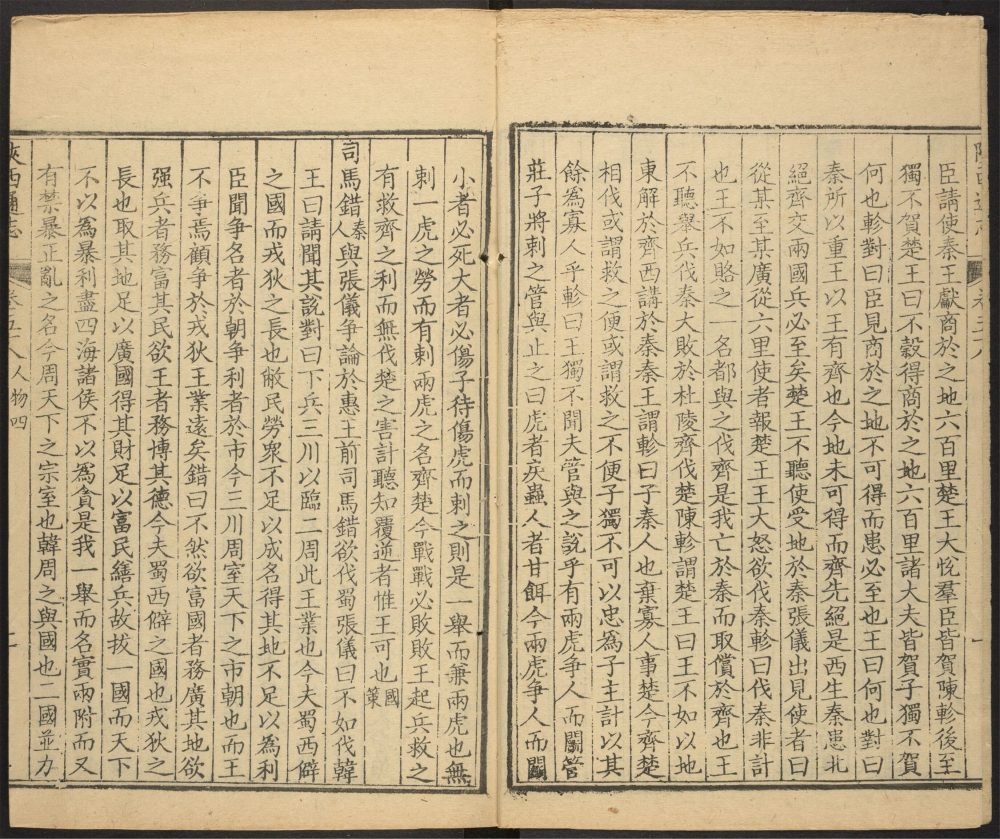 臣請使秦王獻商於之地六百里楚王大恱羣臣皆賀陳軫後至
獨不賀楚王曰不穀得商於之地六百里諸大夫皆賀子獨不賀
何也軫對曰臣見商於之地不可得而患必至也王曰何也對曰
秦所以重王以王有齊也今地未可得而齊先絕是西生秦患北
絕齊交兩國兵必至矣楚王不聽使受地於秦張儀出見使者曰
從某至某廣從六里使者報楚王王大怒欲伐秦軫曰伐秦非計
也王不如賂之一名都與之伐齊是我亡於秦而取償於齊也王
不聽舉兵伐秦大敗於杜陵齊伐楚陳軫謂楚王曰王不如以地
東解於齊西講於秦秦王謂軫曰子秦人也棄寡人事楚今齊楚
相伐或謂救之便或謂救之不便子獨不可以忠為子主計以其
餘為寡人乎軫曰王獨不聞夫管與之說乎有兩虎爭人而鬬管
莊子將刺之管與止之曰虎者戾蟲人者甘餌今兩虎爭人而鬬
小者必死大者必傷子待傷虎而刺之則是一舉而兼兩虎也無
刺一虎之勞而有刺兩虎之名齊楚今戰戰必敗敗王起兵救之
有救齊之利而無伐楚之害計聽知覆逆者惟王可也國策
司馬錯秦人與張儀爭論於惠王前司馬錯欲伐蜀張儀曰不如伐韓
王曰請聞其說對曰下兵三川以臨二周此王業也今夫蜀西僻
之國而戎狄之長也敝民勞衆不足以成名得其地不足以為利
臣聞爭名者於朝爭利者於市今三川周室天下之市朝也而王
不爭焉顧爭於戎狄王業遠矣錯曰不然欲富國者務廣其地欲
强兵者務富其民欲王者務博其德今夫蜀西僻之國也戎狄之
長也取其地足以廣國得其財足以富民繕兵故拔一國而天下
不以為暴利盡四海諸侯不以為貪是我一舉而名實兩附而又
有禁暴正亂之名今周天下之宗室也韓周之與國也二國並力
陜西通志 人物四